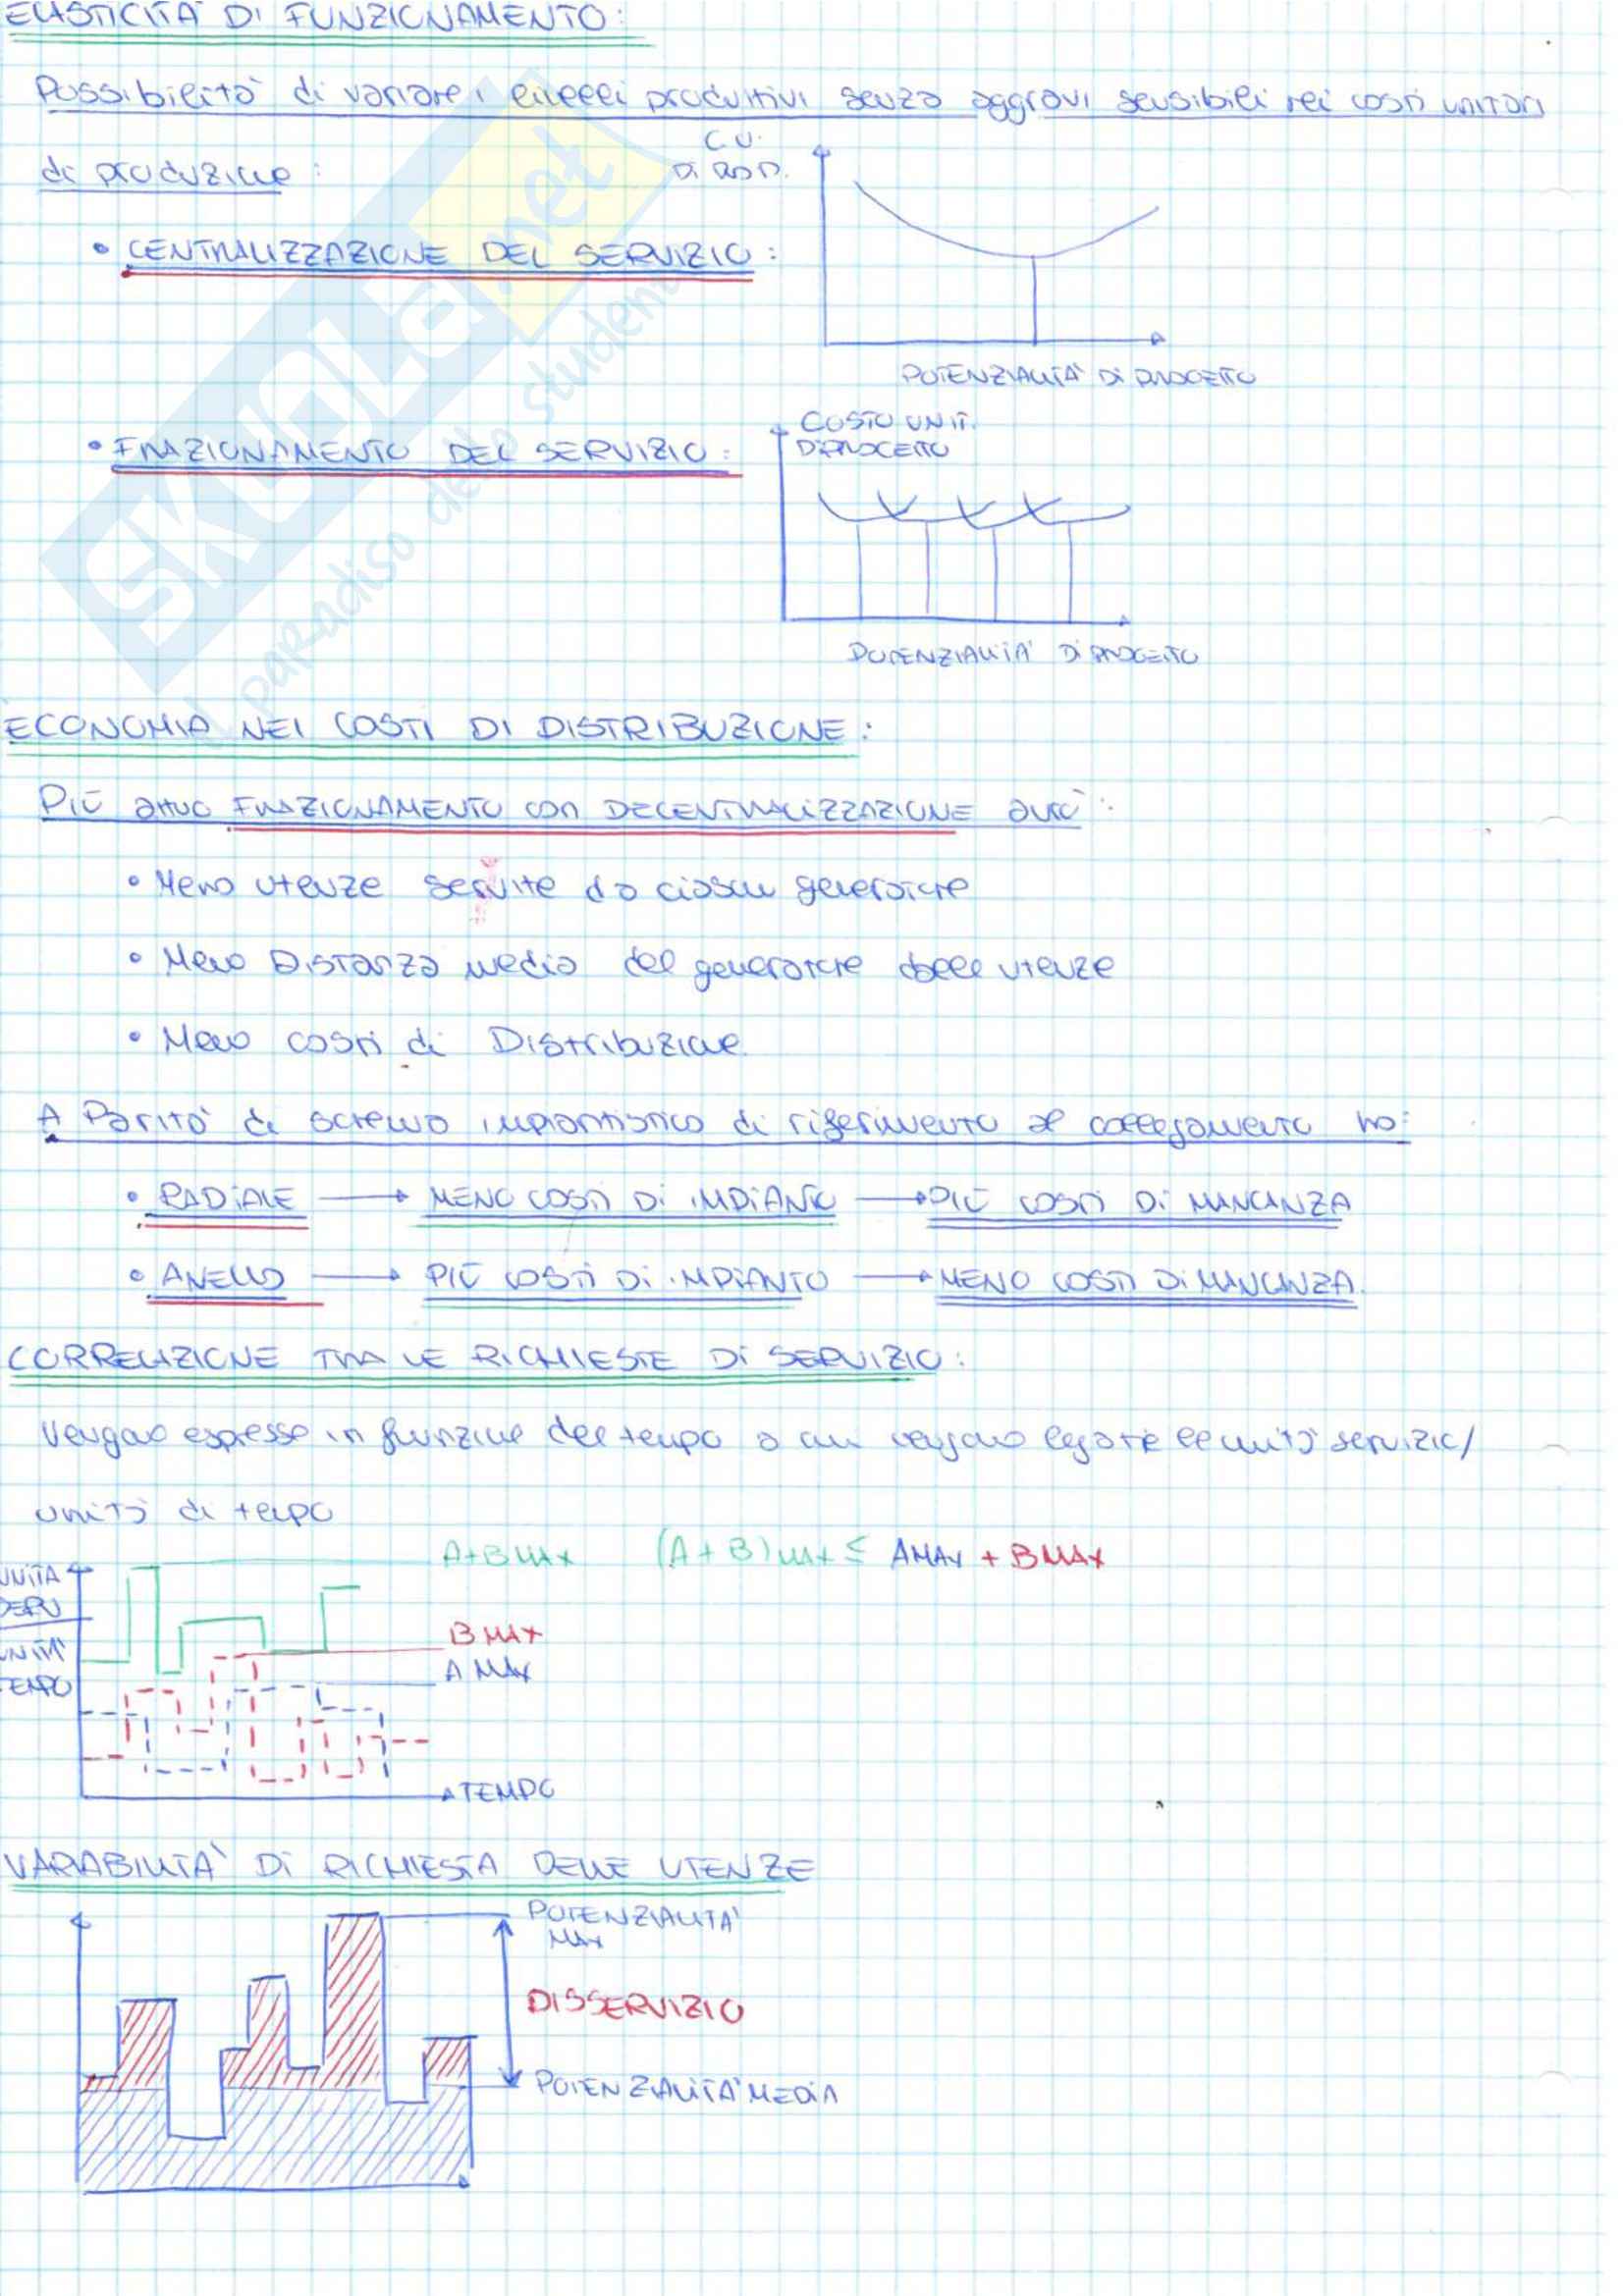 ELASTICITÀ DI FUNZIONAMENTO:
Possibilità di variare i livelli produttivi senza aggravi sensibili nei costi unitari
di produzione:
C.U.
DI PROD.
• CENTRALIZZAZIONE DEL SERVIZIO:
POTENZIALITÀ DI PROGETTO
• FRAZIONAMENTO DEL SERVIZIO:
COSTO UNIT.
DI PROGETTO
POTENZIALITÀ DI PROGETTO
ECONOMIA NEI COSTI DI DISTRIBUZIONE:
Più attuo FRAZIONAMENTO con DECENTRALIZZAZIONE avrò:
• Meno utenze servite da ciascun generatore
• Meno Distanza media del generatore dalle utenze
• Meno costi di Distribuzione.
A Parità di schema impiantistico di riferimento al collegamento ho:
• RADIALE → MENO COSTI DI IMPIANTO → PIÙ COSTI DI MANCANZA
• ANELLO → PIÙ COSTI DI IMPIANTO → MENO COSTI DI MANCANZA.
CORRELAZIONE TRA LE RICHIESTE DI SERVIZIO:
Vengono espresse in funzione del tempo a cui vengono legate le unità servizio/
unità di tempo
A+B MAX (A+B)MAX ≤ AMAX + BMAX
UNITÀ
SERV
UNITÀ
TEMPO
B MAX
A MAX
TEMPO
VARIABILITÀ DI RICHIESTA DELLE UTENZE
POTENZIALITÀ
MAX
DISSERVIZIO
POTENZIALITÀ MEDIA
SKUOLA.net
il paradiso dello studente